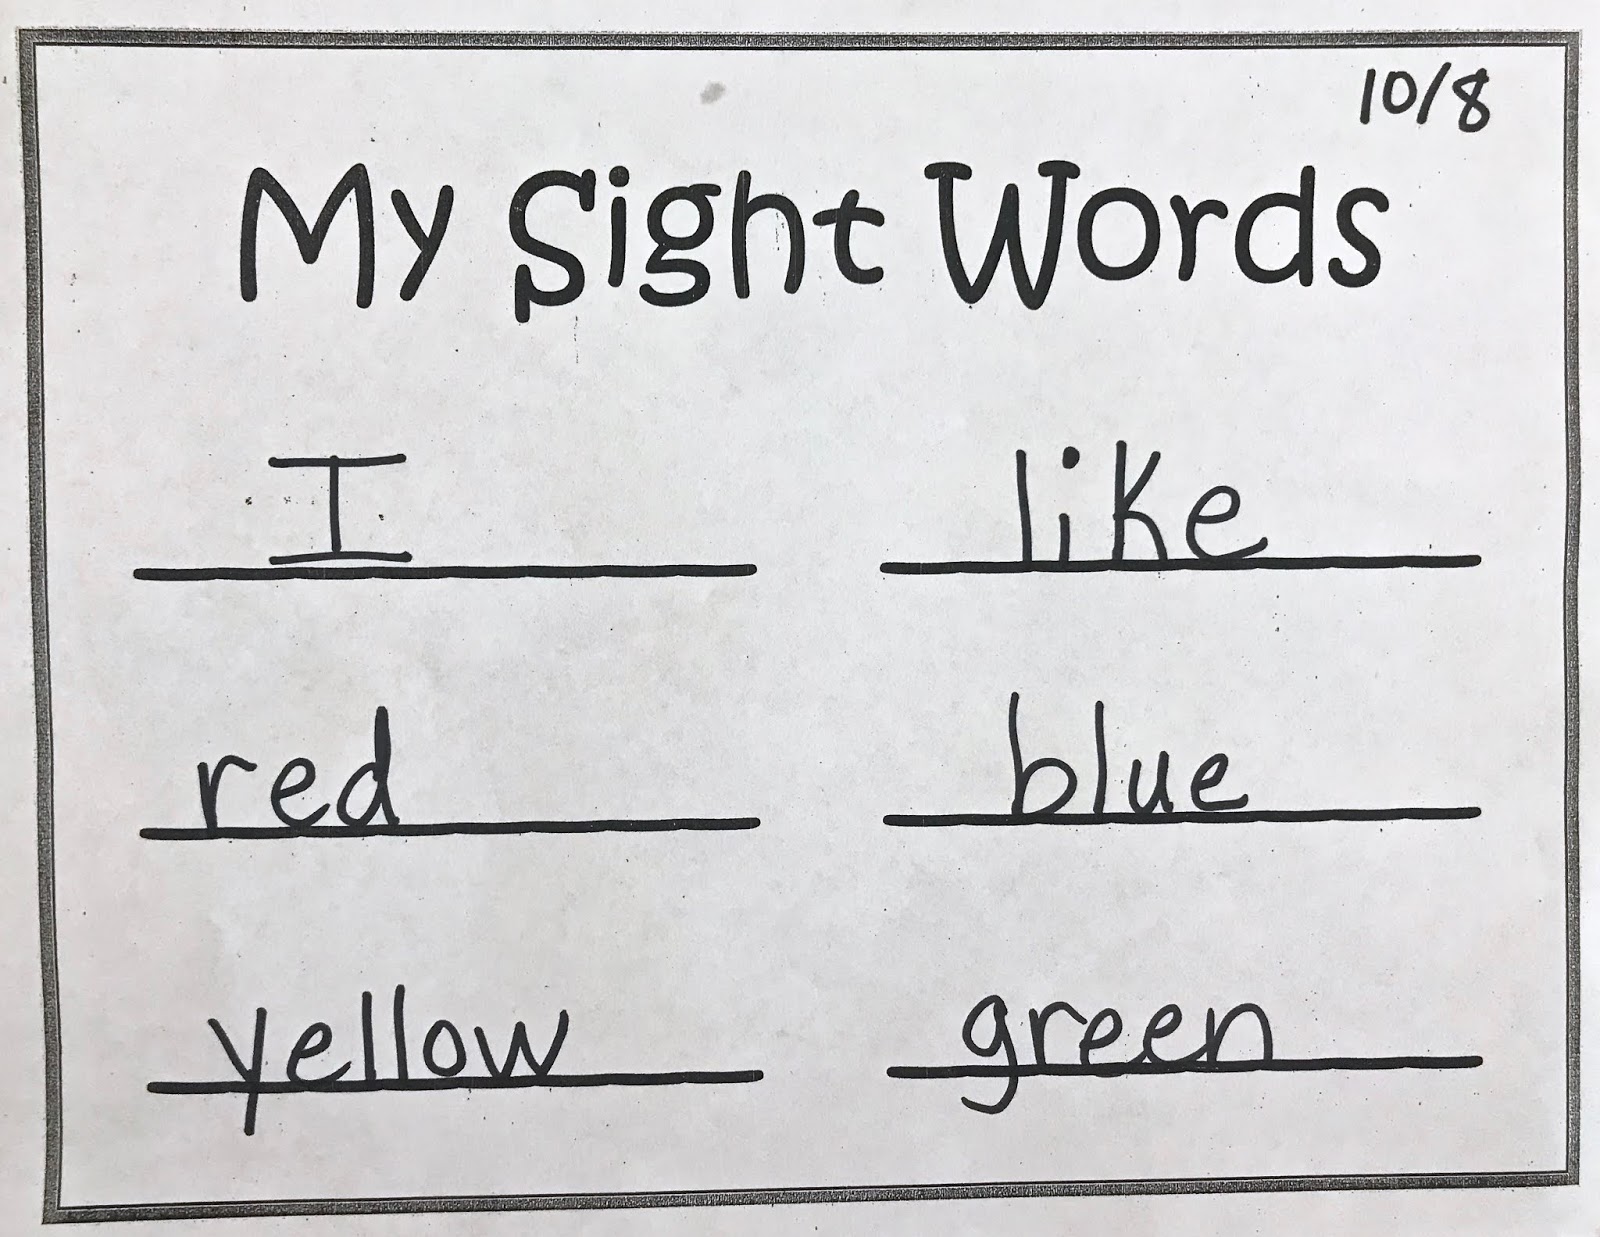 10/8
My Sight Words
I like
red blue
yellow green